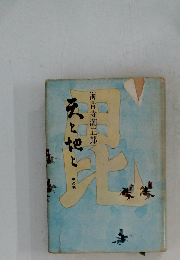 海音寺潮五郎
天と地と
毘